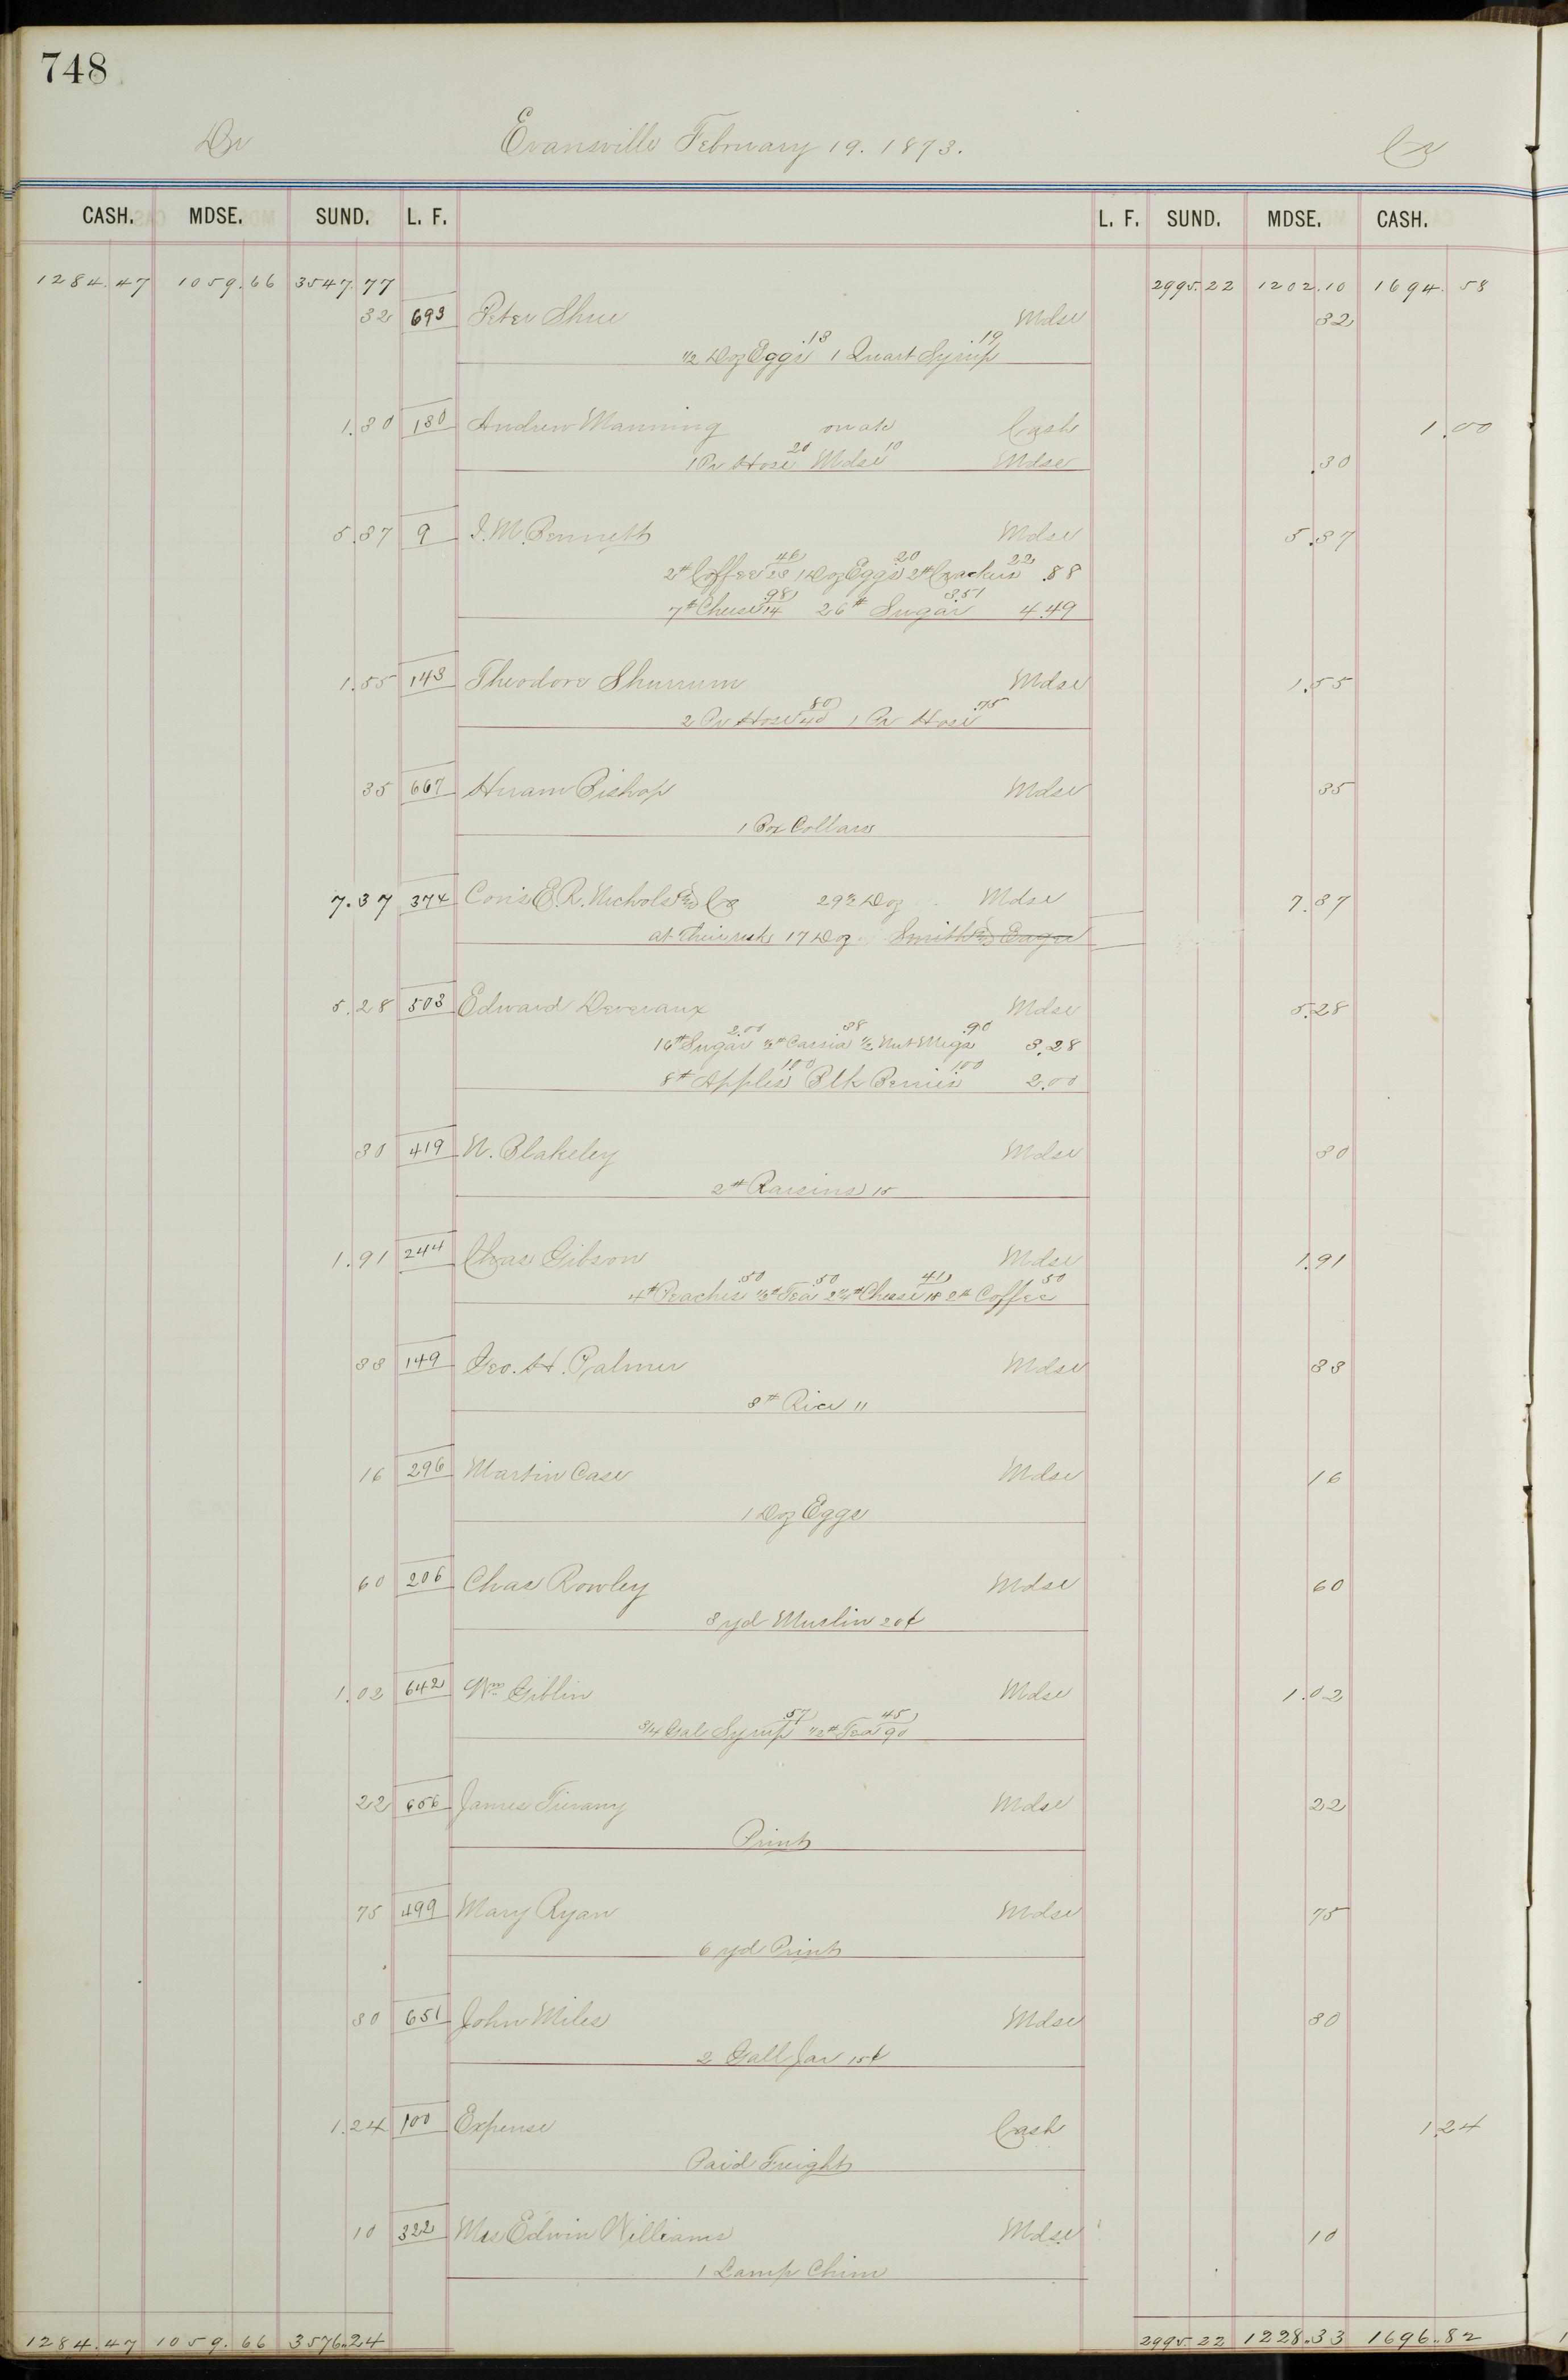 748
Dr Evansville February 19. 1873. Cr
CASH. MDSE. SUND. L. F. L. F. SUND. MDSE. CASH.
1284.47 1059.66 3547.77 2995.22 1202.10 1694.58
32 693 Peter Shue Mdse 32
1/2 Doz Eggs .13 1 Quart Syrup 19
1.30 180 Andrew Manning on a/c Cash 1.00
1 Pr Hose 20 Mdse 10 Mdse .30
5.37 9 I. M. Bennett Mdse 5.37
2# Coffee 23 46 1 Doz Eggs 20 2# Crackers 22 .88
7# Cheese 14 .98 26# Sugar 3.51 4.49
1.55 143 Theodore Shurrum Mdse 1.55
2 Pr Hose 40 80 1 Pr Hose .75
35 667 Hiram Bishop Mdse 35
1 Box Collars
7.37 374 Cons E. R. Nichols & Co 29 1/2 Doz Mdse 7.37
at their risk 17 Doz Smith & Eager
5.28 503 Edward Deveraux Mdse 5.28
16# Sugar 2.00 1/2# Cassia 38 1/2 Nut Megs .90 3.28
8# Apples 1.00 Blk Berries 1.00 2.00
30 419 N. Blakeley Mdse 30
2# Raisins 15
1.91 244 Chas Gibson Mdse 1.91
4# Peaches .50 1/2# Tea .50 2 1/4# Cheese 18 .41 2# Coffee 50
88 149 Geo. H. Palmer Mdse 88
8# Rice 11
16 296 Martin Case Mdse 16
1 Doz Eggs
60 206 Chas Rowley Mdse 60
3 yd Muslin 20¢
1.02 642 Wm Giblin Mdse 1.02
3/4 Gal Syrup .57 1/2# Tea 90 45
22 656 James Mdse 22
Print
75 499 Mary Ryan Mdse 75
6 yd Print
30 651 John Miles Mdse 30
2 Gall Jar 15¢
1.24 100 Expense Cash 1.24
Paid Freight
10 322 Mrs Edwin Williams Mdse 10
1 Lamp Chim
1284.47 1059.66 3576.24 2995.22 1228.33 1696.82